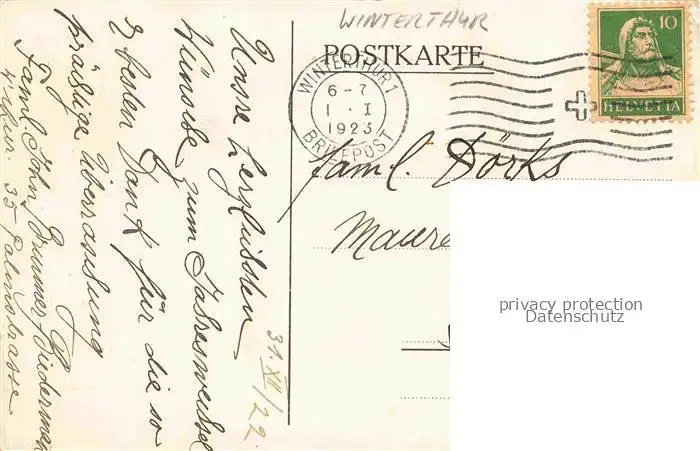 WINTERTHUR
POSTKARTE
10
HELVETIA
WINTERTHUR 1
6-7
1.I
1923
BRIEFPOST
Faml. Dörks
Maure
privacy protection
Datenschutz
Unsre herzlichsten
Wünsche zum Jahreswechsel
& besten Dank für die so
prächtige Überraschung
Faml. John Brunner/Biedermann
35 Palmstrasse
31.XII/22.